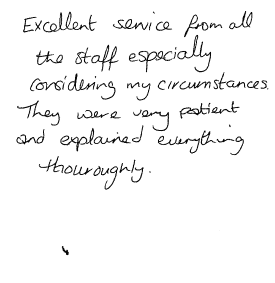 Excellent service from all
the staff especially
considering my circumstances.
They were very patient
and explained everything
thouroughly.